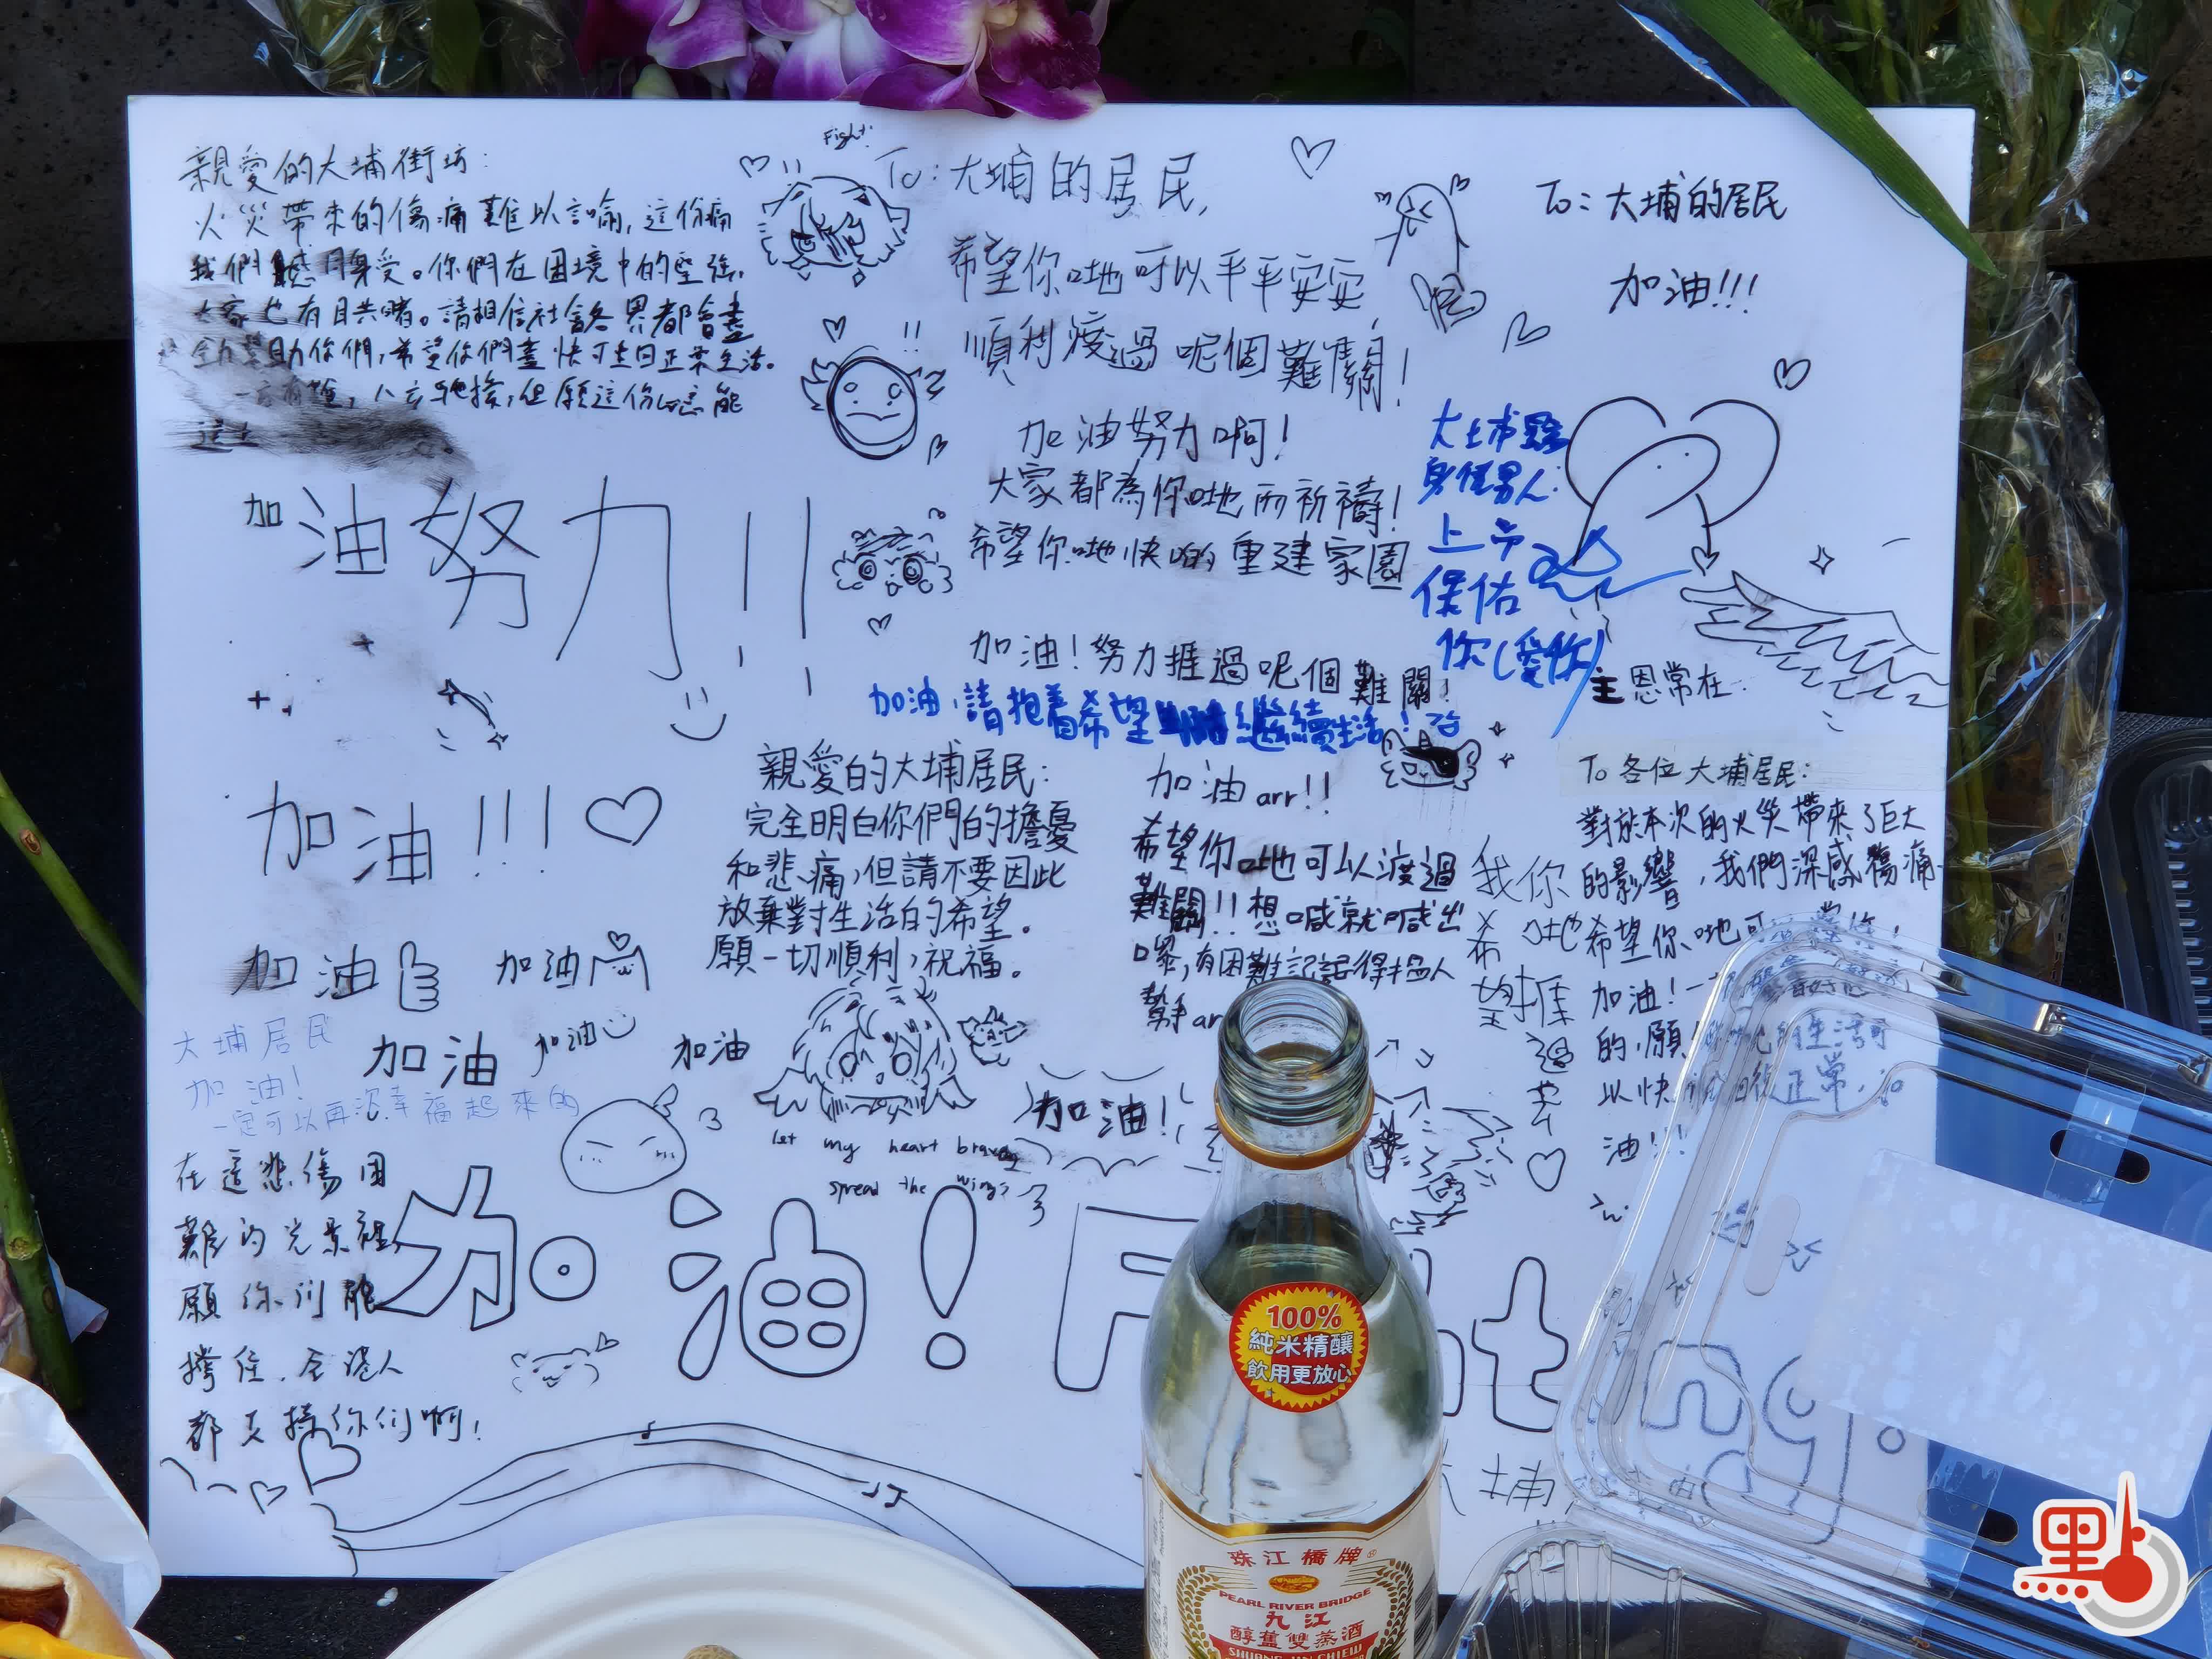 親愛的大埔街坊:
火災帶來的傷痛難以言喻,這份痛
我們感同身受。你們在困境中的堅強,
大家也有目共睹。請相信社會各界都會盡
全力幫助你們,希望你們盡快可走回正常生活。
一方有難,八方馳援,但願這份心意能
加油努力!!
加油!!!
加油
加油
大埔居民
加油!
一定可以再次幸福起來的
加油
加油
加油
在這悲傷困
難的光景裡,
願你们能
撐住.全港人
都支持你们啊!
Fight!
To:大埔的居民,
希望你哋可以平平安安,
順利渡過呢個難關!
加油努力啊!
大家都為你哋而祈禱!
希望你哋快啲重建家園
加油!努力捱過呢個難關!
加油,請抱着希望繼續生活!
親愛的大埔居民:
完全明白你們的擔憂
和悲痛,但請不要因此
放棄對生活的希望。
願一切順利,祝福。
let my heart bravely
spread the wings
加油!
加油arr!!
希望你哋可以渡過
難關!!想喊就喊出
嚟,有困難記得搵人
幫手ar
To:大埔的居民
加油!!!
上帝
保佑
你(愛你)
主恩常在
我希望
你哋捱過去
To各位大埔居民:
對於本次的火災帶來了巨大
的影響,我們深感傷痛
希望你哋可
加油!一
的,願
以快
正常,
油!!!
加油!
大埔
100%
純米精釀
飲用更放心
珠江橋牌®
PEARL RIVER BRIDGE
九江
醇舊雙蒸酒
SHUANG JIN CHIEW
點